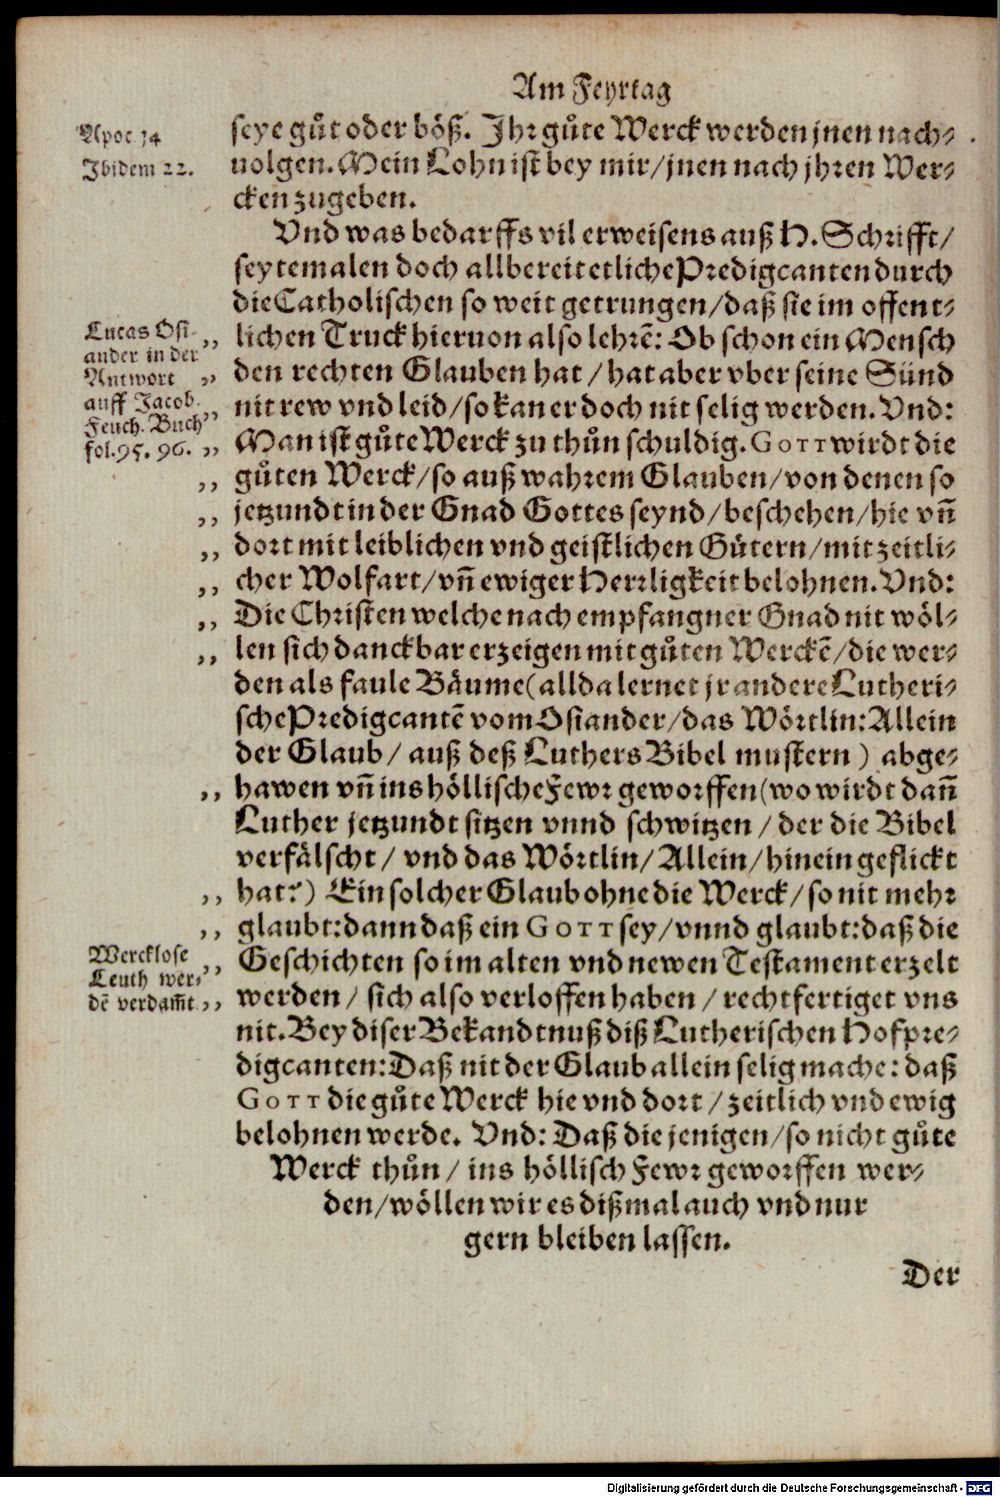 Am Feyrtag
Apoc 14
seye gůt oder böß. Jhr gůte Werck werden jnen nach-
Ibidem 22.
uolgen. Mein Lohn ist bey mir/ jnen nach jhren Wer-
cken zugeben.
Vnd was bedarffs vil erweisens auß H. Schrifft/
seytemalen doch allbereit etliche Predigcanten durch
die Catholischen so weit getrungen/ daß sie im offent-
Lucas Osi-
ander in der
Antwort
auff Jacob.
Feuch. Buch
fol. 95. 96.
,, lichen Truck hieruon also lehrē: Ob schon ein Mensch
,, den rechten Glauben hat/ hat aber vber seine Sünd
,, nit rew vnd leid/ so kan er doch nit selig werden. Vnd:
,, Man ist gůte Werck zu thůn schuldig. GOTT wirdt die
,, gůten Werck/ so auß wahrem Glauben/ von denen so
,, jetzundt in der Gnad Gottes seynd/ beschehen/ hie vn̄
,, dort mit leiblichen vnd geistlichen Gütern/ mit zeitli-
,, cher Wolfart/ vn̄ ewiger Herrligkeit belohnen. Vnd:
,, Die Christen welche nach empfangner Gnad nit wöl-
,, len sich danckbar erzeigen mit gůten Werckē/ die wer-
den als faule Bäume (allda lernet jr andere Lutheri-
sche Predigcantē vom Osiander/ das Wörtlin: Allein
der Glaub/ auß deß Luthers Bibel mustern) abge-
,, hawen vn̄ ins höllische Fewr geworffen (wo wirdt dan̄
Luther jetzundt sitzen vnnd schwitzen/ der die Bibel
verfälscht/ vnd das Wörtlin/ Allein/ hinein geflickt
,, hat?) Ein solcher Glaub ohne die Werck/ so nit mehr
,, glaubt: dann daß ein GOTT sey/ vnnd glaubt: daß die
Wercklose
Leuth wer-
dē verdam̄t
,, Geschichten so im alten vnd newen Testament erzelt
,, werden/ sich also verloffen haben/ rechtfertiget vns
nit. Bey diser Bekandtnuß diß Lutherischen Hofpre-
digcanten: Daß nit der Glaub allein selig mache: daß
GOTT die gůte Werck hie vnd dort/ zeitlich vnd ewig
belohnen werde. Vnd: Daß die jenigen/ so nicht gůte
Werck thůn/ ins höllisch Fewr geworffen wer-
den/ wöllen wir es dißmal auch vnd nur
gern bleiben lassen.
Der
Digitalisierung gefördert durch die Deutsche Forschungsgemeinschaft - DFG